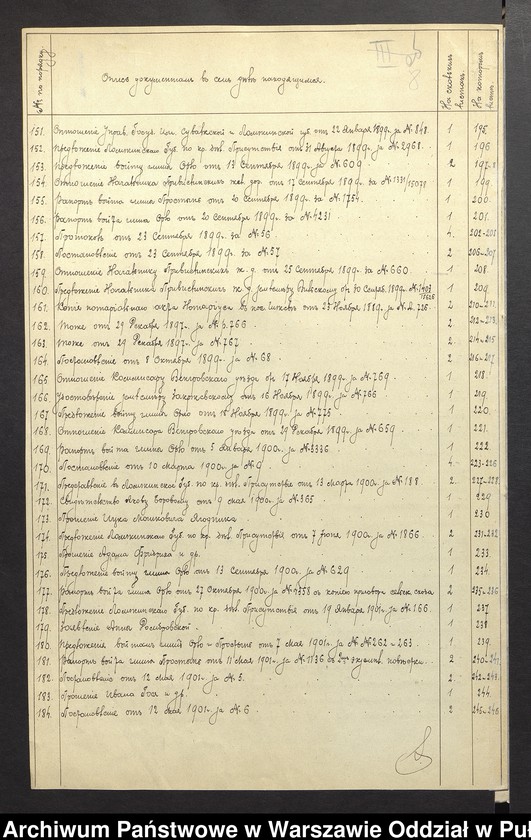 № по порядку
Опись документамъ въ семъ дѣлѣ находящимся.
На сколькихъ листахъ.
На которыхъ листахъ.
III
8
151. Отношеніе Управ. Госуд. Имущ. Сувалкской и Ломжинской губ. отъ 22 Января 1899 г. за № 848. 1 195.
152. Предложеніе Ломжинскаго Губ. по кр. дѣл. Присутствія отъ 31 Августа 1899 г. за № 2968. 1 196
153. Предложеніе войту гмины отъ 13 Сентября 1899 г. за № 609 2 197-8
154. Отношеніе Начальника Привислинскихъ жел. дор. отъ 17 Сентября 1899 г. за № 1331/15079 1 199
155. Рапортъ войта гмины Простынь отъ 20 Сентября 1899 г. за № 1754. 1 200
156. Рапортъ войта гмины отъ 20 Сентября 1899 г. за № 4231 1 201.
157. Протоколъ отъ 23 Сентября 1899 г. за № 56 4. 202-205
158. Постановленіе отъ 23 Сентября 1899 г. за № 57 2 206-207
159. Отношеніе Начальнику Привислинскихъ ж. д. отъ 25 Сентября 1899 г. за № 660 1 208.
160. Предложеніе Начальника Привислинскихъ ж. д. 1 209
161. Копія нотаріальнаго акта Нотаріуса отъ 25 Ноября 1889 г. за № 2,726. 2 210-211.
162. Тоже отъ 29 Декабря 1897 г. за № 766 2 212-213.
163. Тоже отъ 29 Декабря 1897 г. за № 767 2 214-215
164. Постановленіе отъ 8 Октября 1899 г. за № 68 2 216-217
165. Отношеніе Коммисару Венгровскаго уѣзда отъ 17 Ноября 1899 г. за № 769 1 218.
166. отъ 16 Ноября 1899 г. за № 766 1 219.
167. Предложеніе войту гмины отъ Ноября 1899 г. за № 775 1 220.
168. Отношеніе Коммисара Венгровскаго уѣзда отъ 29 Декабря 1899 г. за № 659 1 221.
169. Рапортъ войта гмины отъ 5 Января 1900 г. за № 3336 1 222
170. Постановленіе отъ 10 Марта 1900 г. за № 9 4 223-226
171. Представленіе въ Ломжинское Губ. по кр. дѣл. Присутствіе отъ 13 Марта 1900 г. за № 188 2 227-228
172. Свидѣтельство Якову Боровому отъ 9 Мая 1900 г. за № 365 1 229
173. Прошеніе Ицка Мошковича Ягодника 1 230
174. Предложеніе Ломжинскаго Губ. по кр. дѣл. Присутствія отъ 7 Іюня 1900 г. за № 1866 2 231-232
175. Прошеніе Адама и др. 1 233
176. Предложеніе войту гмины отъ 13 Сентября 1900 г. за № 629 1 234
177. Рапортъ войта гмины отъ 27 Октября 1900 г. за № 4358 съ копіею приговора сельск. схода 2 235-236
178. Предложеніе Ломжинскаго Губ. по кр. дѣл. Присутствія отъ 19 Января 1901 г. за № 166 1 237
179. Заявленіе Анны 1 238
180. Предложеніе войтамъ гминъ и Простынь отъ 7 Мая 1901 г. за №№ 262-263 1 239
181. Рапортъ войта гмины Простынь отъ 11 Мая 1901 г. за № 1136 съ 2мя экземпл. повѣстки. 2 240-241
182. Постановленіе отъ 12 Мая 1901 г. за № 5. 2 242-243
183. Прошеніе Ивана и др. 1 244
184. Постановленіе отъ 12 Мая 1901 г. за № 6 2 245-246
Archiwum Państwowe w Warszawie Oddział w Puł